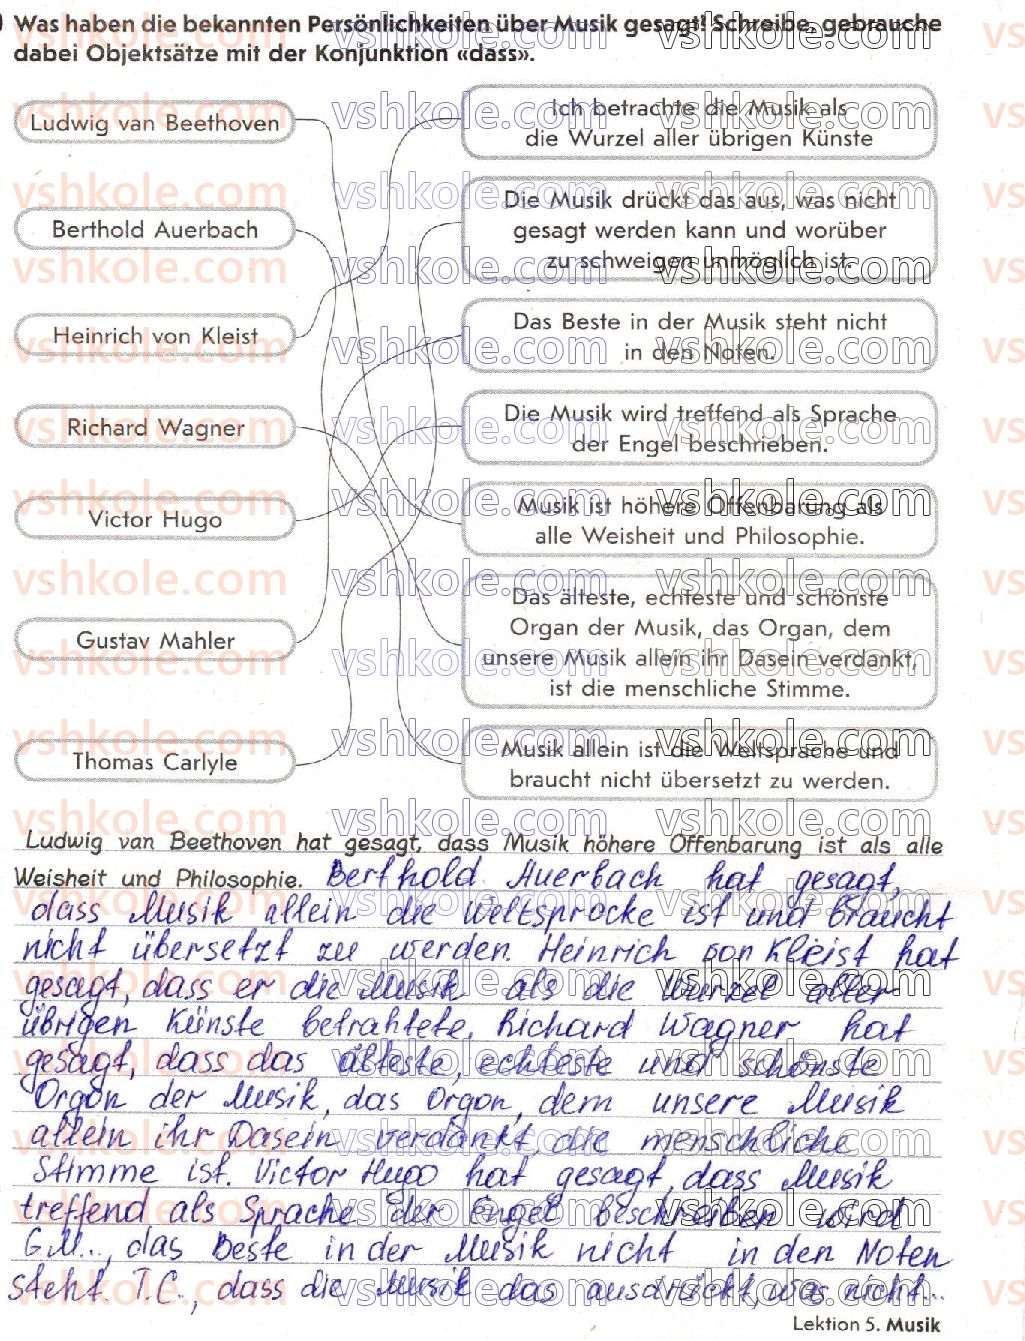 Was haben die bekannten Persönlichkeiten über Musik gesagt? Schreibe, gebrauche
dabei Objektsätze mit der Konjunktion «dass».
Ludwig van Beethoven
Berthold Auerbach
Heinrich von Kleist
Richard Wagner
Victor Hugo
Gustav Mahler
Thomas Carlyle
Ich betrachte die Musik als
die Wurzel aller übrigen Künste
Die Musik drückt das aus, was nicht
gesagt werden kann und worüber
zu schweigen unmöglich ist.
Das Beste in der Musik steht nicht
in den Noten.
Die Musik wird treffend als Sprache
der Engel beschrieben.
Musik ist höhere Offenbarung als
alle Weisheit und Philosophie.
Das älteste, echteste und schönste
Organ der Musik, das Organ, dem
unsere Musik allein ihr Dasein verdankt,
ist die menschliche Stimme.
Musik allein ist die Weltsprache und
braucht nicht übersetzt zu werden.
Ludwig van Beethoven hat gesagt, dass Musik höhere Offenbarung ist als alle
Weisheit und Philosophie. Berthold Auerbach hat gesagt,
dass Musik allein die Weltsprocke ist und braucht
nicht übersetzt zu werden. Heinrich von Kleist hat
gesagt, dass er die Musik als die Wurzel aller
übrigen Künste betrahtete. Richard Wagner hat
gesagt, dass das älteste, echteste und schönste
Orgon der Musik, das Orgon, dem unsere Musik
allein ihr Dasein verdankt, die menschliche
Stimme ist. Victor Hugo hat gesagt, dass Musik
treffend als Sprache der Engel beschreiben wird
G.M..., das Beste in der Musik nicht in den Noten
steht. T.C..., dass die Musik das ausdrückt, was nicht...
Lektion 5. Musik
vshkole.com